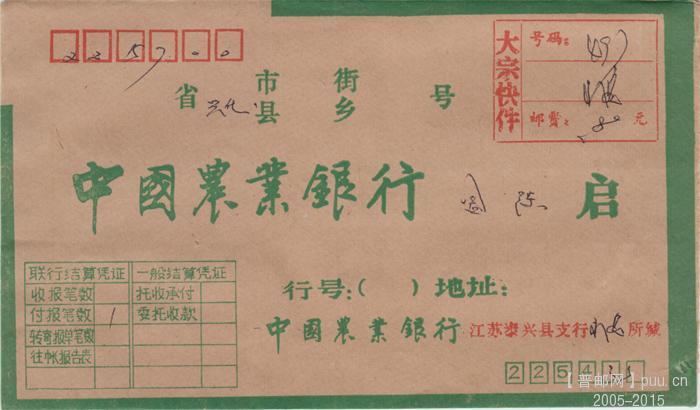 225700
大宗快件
号码:
邮费: 元
省 兴化 市县 街乡 号
中國農業銀行 启
联行结算凭证 一般结算凭证
收报笔数 托收承付
付报笔数 1 委托收款
转弯报单笔数
往帐报告表
行号:( ) 地址:
中國農業銀行 江苏泰兴县支行 所缄
2254
【普邮网】puu.cn
2005-2015